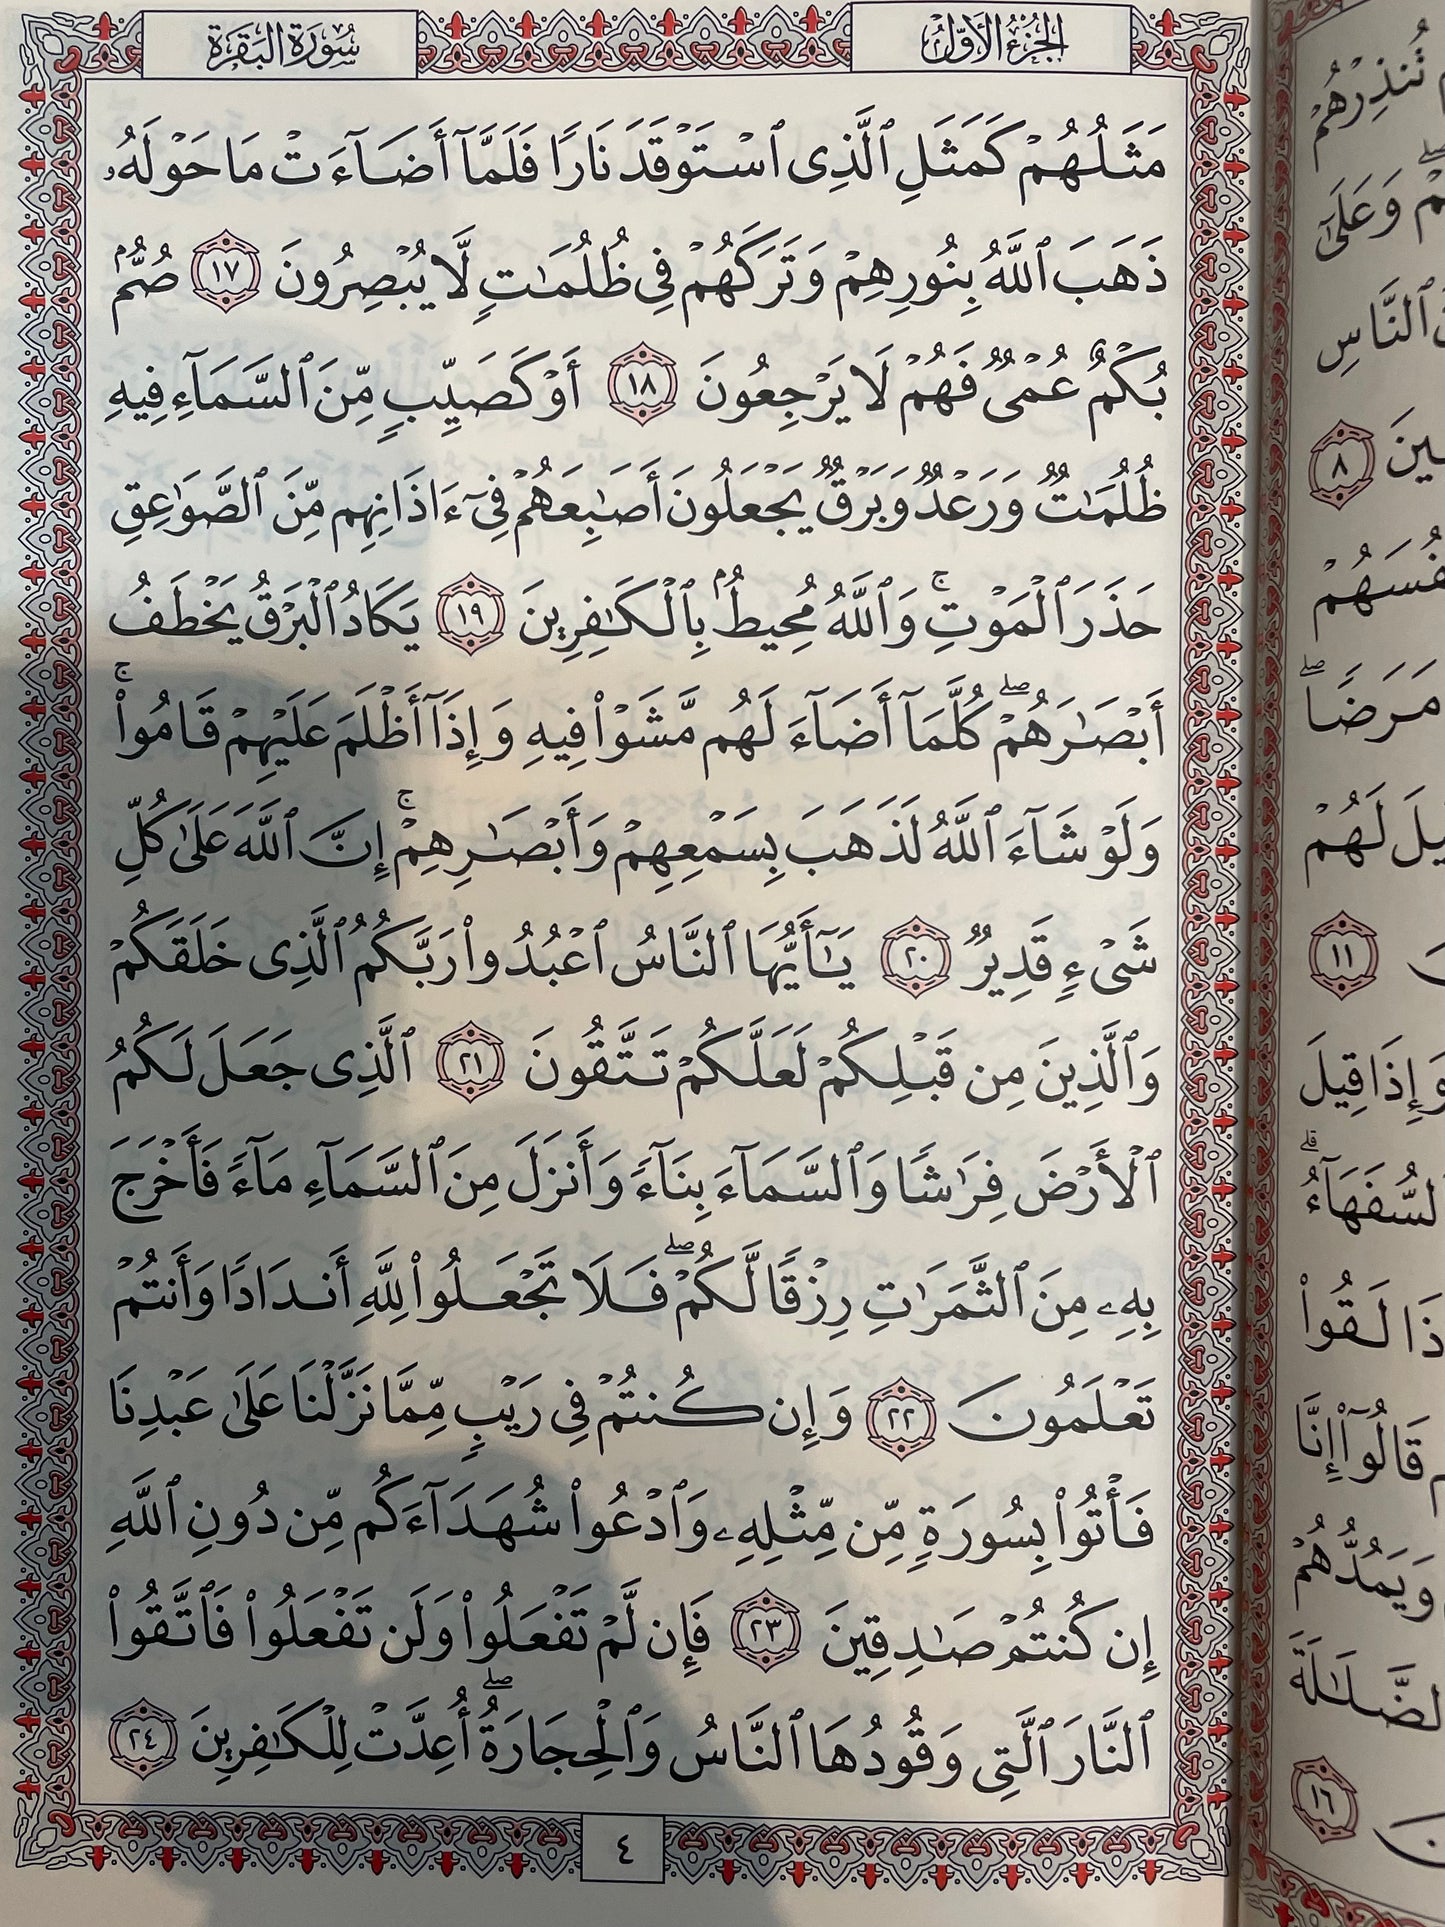 الجزء الأول
سورة البقرة
مَثَلُهُمْ كَمَثَلِ ٱلَّذِى ٱسْتَوْقَدَ نَارًا فَلَمَّآ أَضَآءَتْ مَا حَوْلَهُۥ
ذَهَبَ ٱللَّهُ بِنُورِهِمْ وَتَرَكَهُمْ فِى ظُلُمَٰتٍ لَّا يُبْصِرُونَ ١٧ صُمٌّۢ
بُكْمٌ عُمْىٌ فَهُمْ لَا يَرْجِعُونَ ١٨ أَوْ كَصَيِّبٍ مِّنَ ٱلسَّمَآءِ فِيهِ
ظُلُمَٰتٌ وَرَعْدٌ وَبَرْقٌ يَجْعَلُونَ أَصَٰبِعَهُمْ فِىٓ ءَاذَانِهِم مِّنَ ٱلصَّوَٰعِقِ
حَذَرَ ٱلْمَوْتِ ۚ وَٱللَّهُ مُحِيطٌۢ بِٱلْكَٰفِرِينَ ١٩ يَكَادُ ٱلْبَرْقُ يَخْطَفُ
أَبْصَٰرَهُمْ ۖ كُلَّمَآ أَضَآءَ لَهُم مَّشَوْا۟ فِيهِ وَإِذَآ أَظْلَمَ عَلَيْهِمْ قَامُوا۟ ۚ
وَلَوْ شَآءَ ٱللَّهُ لَذَهَبَ بِسَمْعِهِمْ وَأَبْصَٰرِهِمْ ۚ إِنَّ ٱللَّهَ عَلَىٰ كُلِّ
شَىْءٍ قَدِيرٌ ٢٠ يَٰٓأَيُّهَا ٱلنَّاسُ ٱعْبُدُوا۟ رَبَّكُمُ ٱلَّذِى خَلَقَكُمْ
وَٱلَّذِينَ مِن قَبْلِكُمْ لَعَلَّكُمْ تَتَّقُونَ ٢١ ٱلَّذِى جَعَلَ لَكُمُ
ٱلْأَرْضَ فِرَٰشًا وَٱلسَّمَآءَ بِنَآءً وَأَنزَلَ مِنَ ٱلسَّمَآءِ مَآءً فَأَخْرَجَ
بِهِۦ مِنَ ٱلثَّمَرَٰتِ رِزْقًا لَّكُمْ ۖ فَلَا تَجْعَلُوا۟ لِلَّهِ أَندَادًا وَأَنتُمْ
تَعْلَمُونَ ٢٢ وَإِن كُنتُمْ فِى رَيْبٍ مِّمَّا نَزَّلْنَا عَلَىٰ عَبْدِنَا
فَأْتُوا۟ بِسُورَةٍ مِّن مِّثْلِهِۦ وَٱدْعُوا۟ شُهَدَآءَكُم مِّن دُونِ ٱللَّهِ
إِن كُنتُمْ صَٰدِقِينَ ٢٣ فَإِن لَّمْ تَفْعَلُوا۟ وَلَن تَفْعَلُوا۟ فَٱتَّقُوا۟
ٱلنَّارَ ٱلَّتِى وَقُودُهَا ٱلنَّاسُ وَٱلْحِجَارَةُ ۖ أُعِدَّتْ لِلْكَٰفِرِينَ ٢٤
٤
تُنذِرْهُمْ
وَعَلَىٰٓ
ٱلنَّاسِ
٨
مَرَضًا ۖ
لَهُمْ
١١
وَإِذَا قِيلَ
ٱلسُّفَهَآءُ ۗ
لَقُوا۟
قَالُوٓا۟ إِنَّا
وَيَمُدُّهُمْ
ٱلضَّلَٰلَةَ
١٦